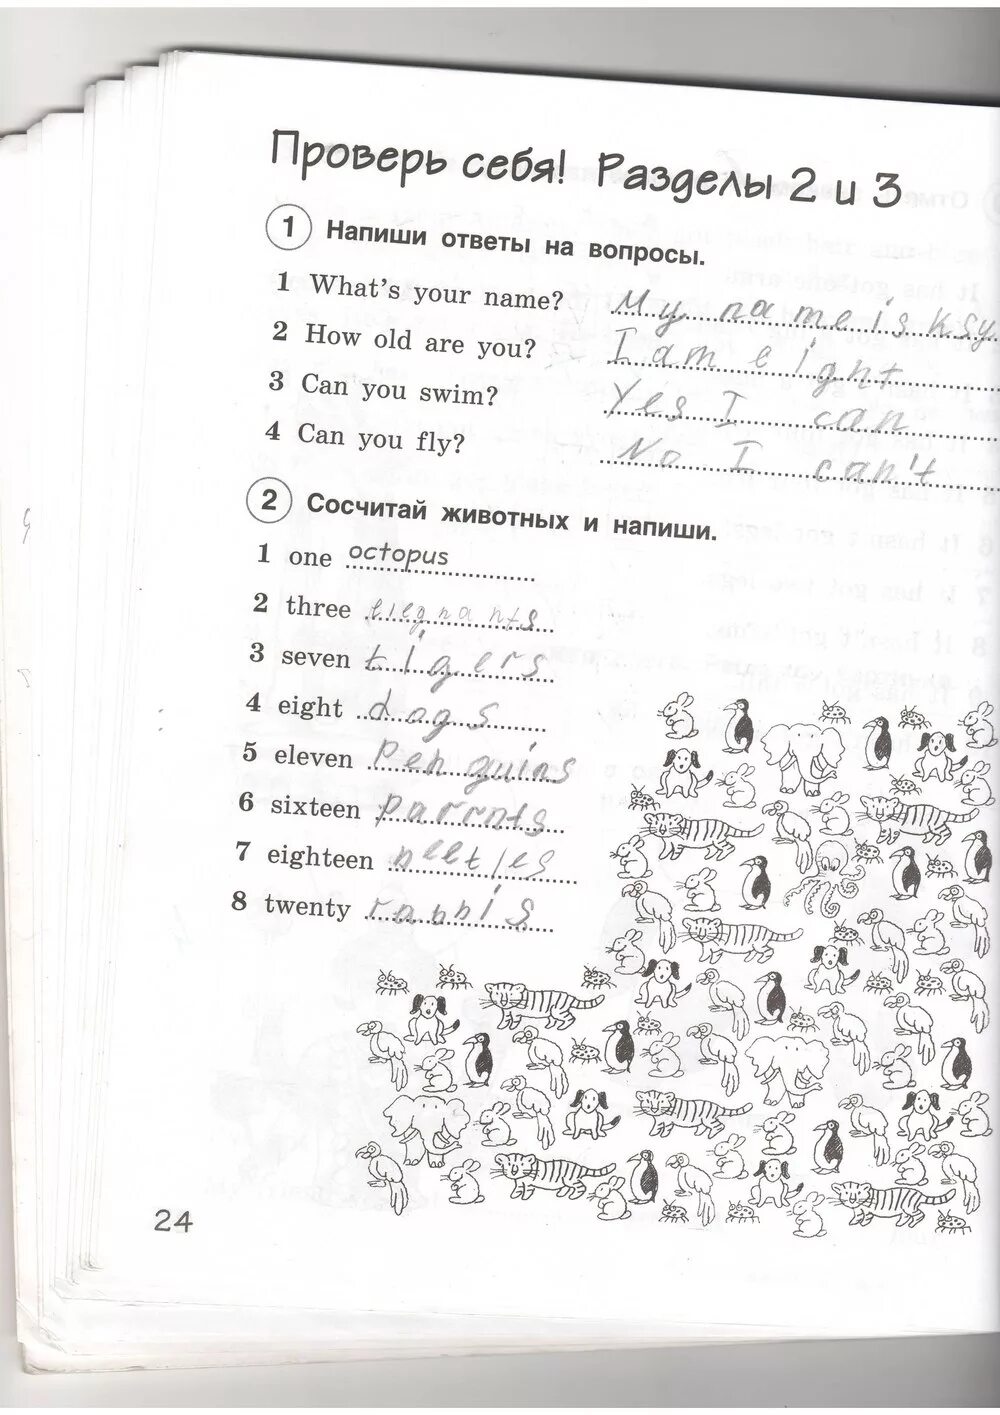 Проверь себя! Разделы 2 и 3
1 Напиши ответы на вопросы.
1 What's your name? My name is Ksy
2 How old are you? I am eight
3 Can you swim? Yes I can
4 Can you fly? No I can't
2 Сосчитай животных и напиши.
1 one octopus
2 three
3 seven tigers
4 eight dogs
5 eleven penguins
6 sixteen parrnts
7 eighteen
8 twenty
24